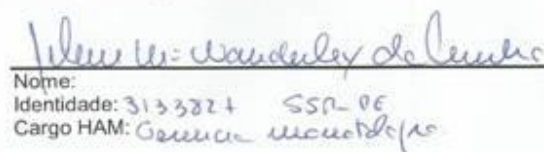 M. Wanderley da Cunha
Nome:
Identidade: 3133821 SSP-PE
Cargo HAM: Gerencia